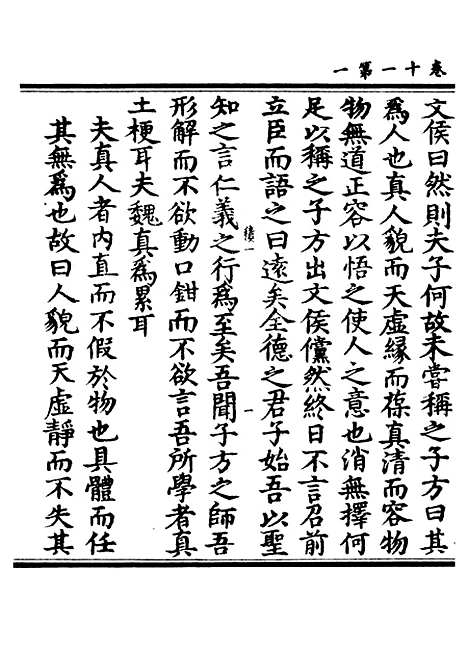 卷十一第一
文侯曰然則夫子何故未嘗稱之子方曰其
爲人也真人貌而天虛緣而葆真清而容物
物無道正容以悟之使人之意也消無擇何
足以稱之子方出文侯儻然終日不言召前
立臣而語之曰遠矣全德之君子始吾以聖
知之言仁義之行爲至矣吾聞子方之師吾
形解而不欲動口鉗而不欲言吾所學者真
土梗耳夫魏真爲累耳
夫真人者內直而不假於物也具體而任
其無爲也故曰人貌而天虛靜而不失其